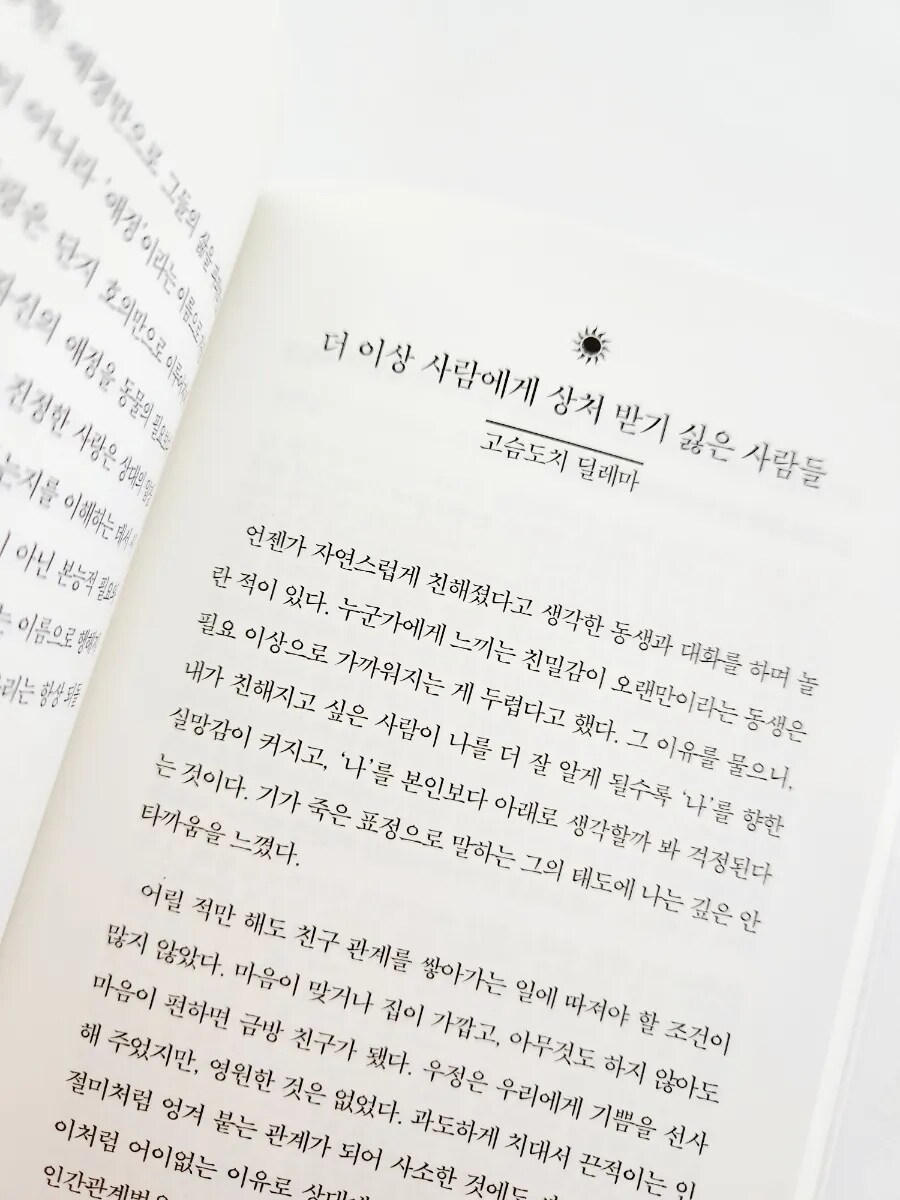 애정만으로 그들의 삶을
아니라 '애정'이라는 이름으로
단지 호의만으로
자신의 애정을 동물의
진정한 사랑은 상대의
는지를 이해하는 데서
아닌 본능적
는 이름으로
리는 항상 되돌
더 이상 사람에게 상처 받기 싫은 사람들
고슴도치 딜레마
언젠가 자연스럽게 친해졌다고 생각한 동생과 대화를 하며 놀
란 적이 있다. 누군가에게 느끼는 친밀감이 오랜만이라는 동생은
필요 이상으로 가까워지는 게 두렵다고 했다. 그 이유를 물으니,
내가 친해지고 싶은 사람이 나를 더 잘 알게 될수록 '나'를 향한
실망감이 커지고, '나'를 본인보다 아래로 생각할까 봐 걱정된다
는 것이다. 기가 죽은 표정으로 말하는 그의 태도에 나는 깊은 안
타까움을 느꼈다.
어릴 적만 해도 친구 관계를 쌓아가는 일에 따져야 할 조건이
많지 않았다. 마음이 맞거나 집이 가깝고, 아무것도 하지 않아도
마음이 편하면 금방 친구가 됐다. 우정은 우리에게 기쁨을 선사
해 주었지만, 영원한 것은 없었다. 과도하게 치대서 끈적이는 인
절미처럼 엉겨 붙는 관계가 되어 사소한 것에도
이처럼 어이없는 이유로
인간관계